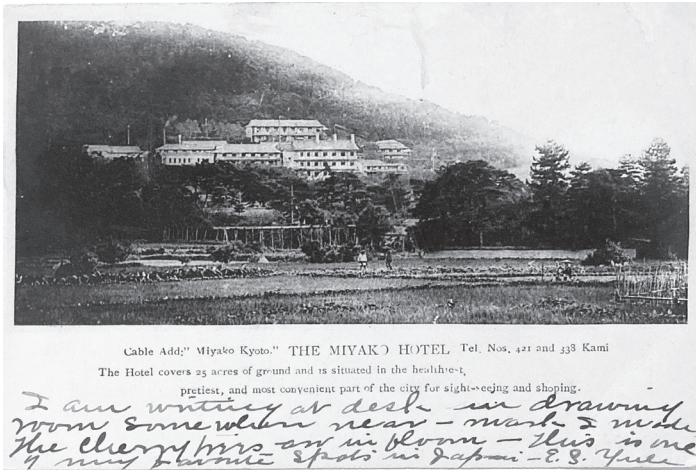 Cable Add;" Miyako Kyoto." THE MIYAKO HOTEL Tel. Nos. 421 and 338 Kami
The Hotel covers 25 acres of ground and is situated in the healthiest,
pretiest, and most convenient part of the city for sight-seeing and shoping.
I am writing at desk in drawing
room somewhere near - mark I made
The cherry trees are in bloom - This is one
of my favorite spots in Japan - E. S. Yule